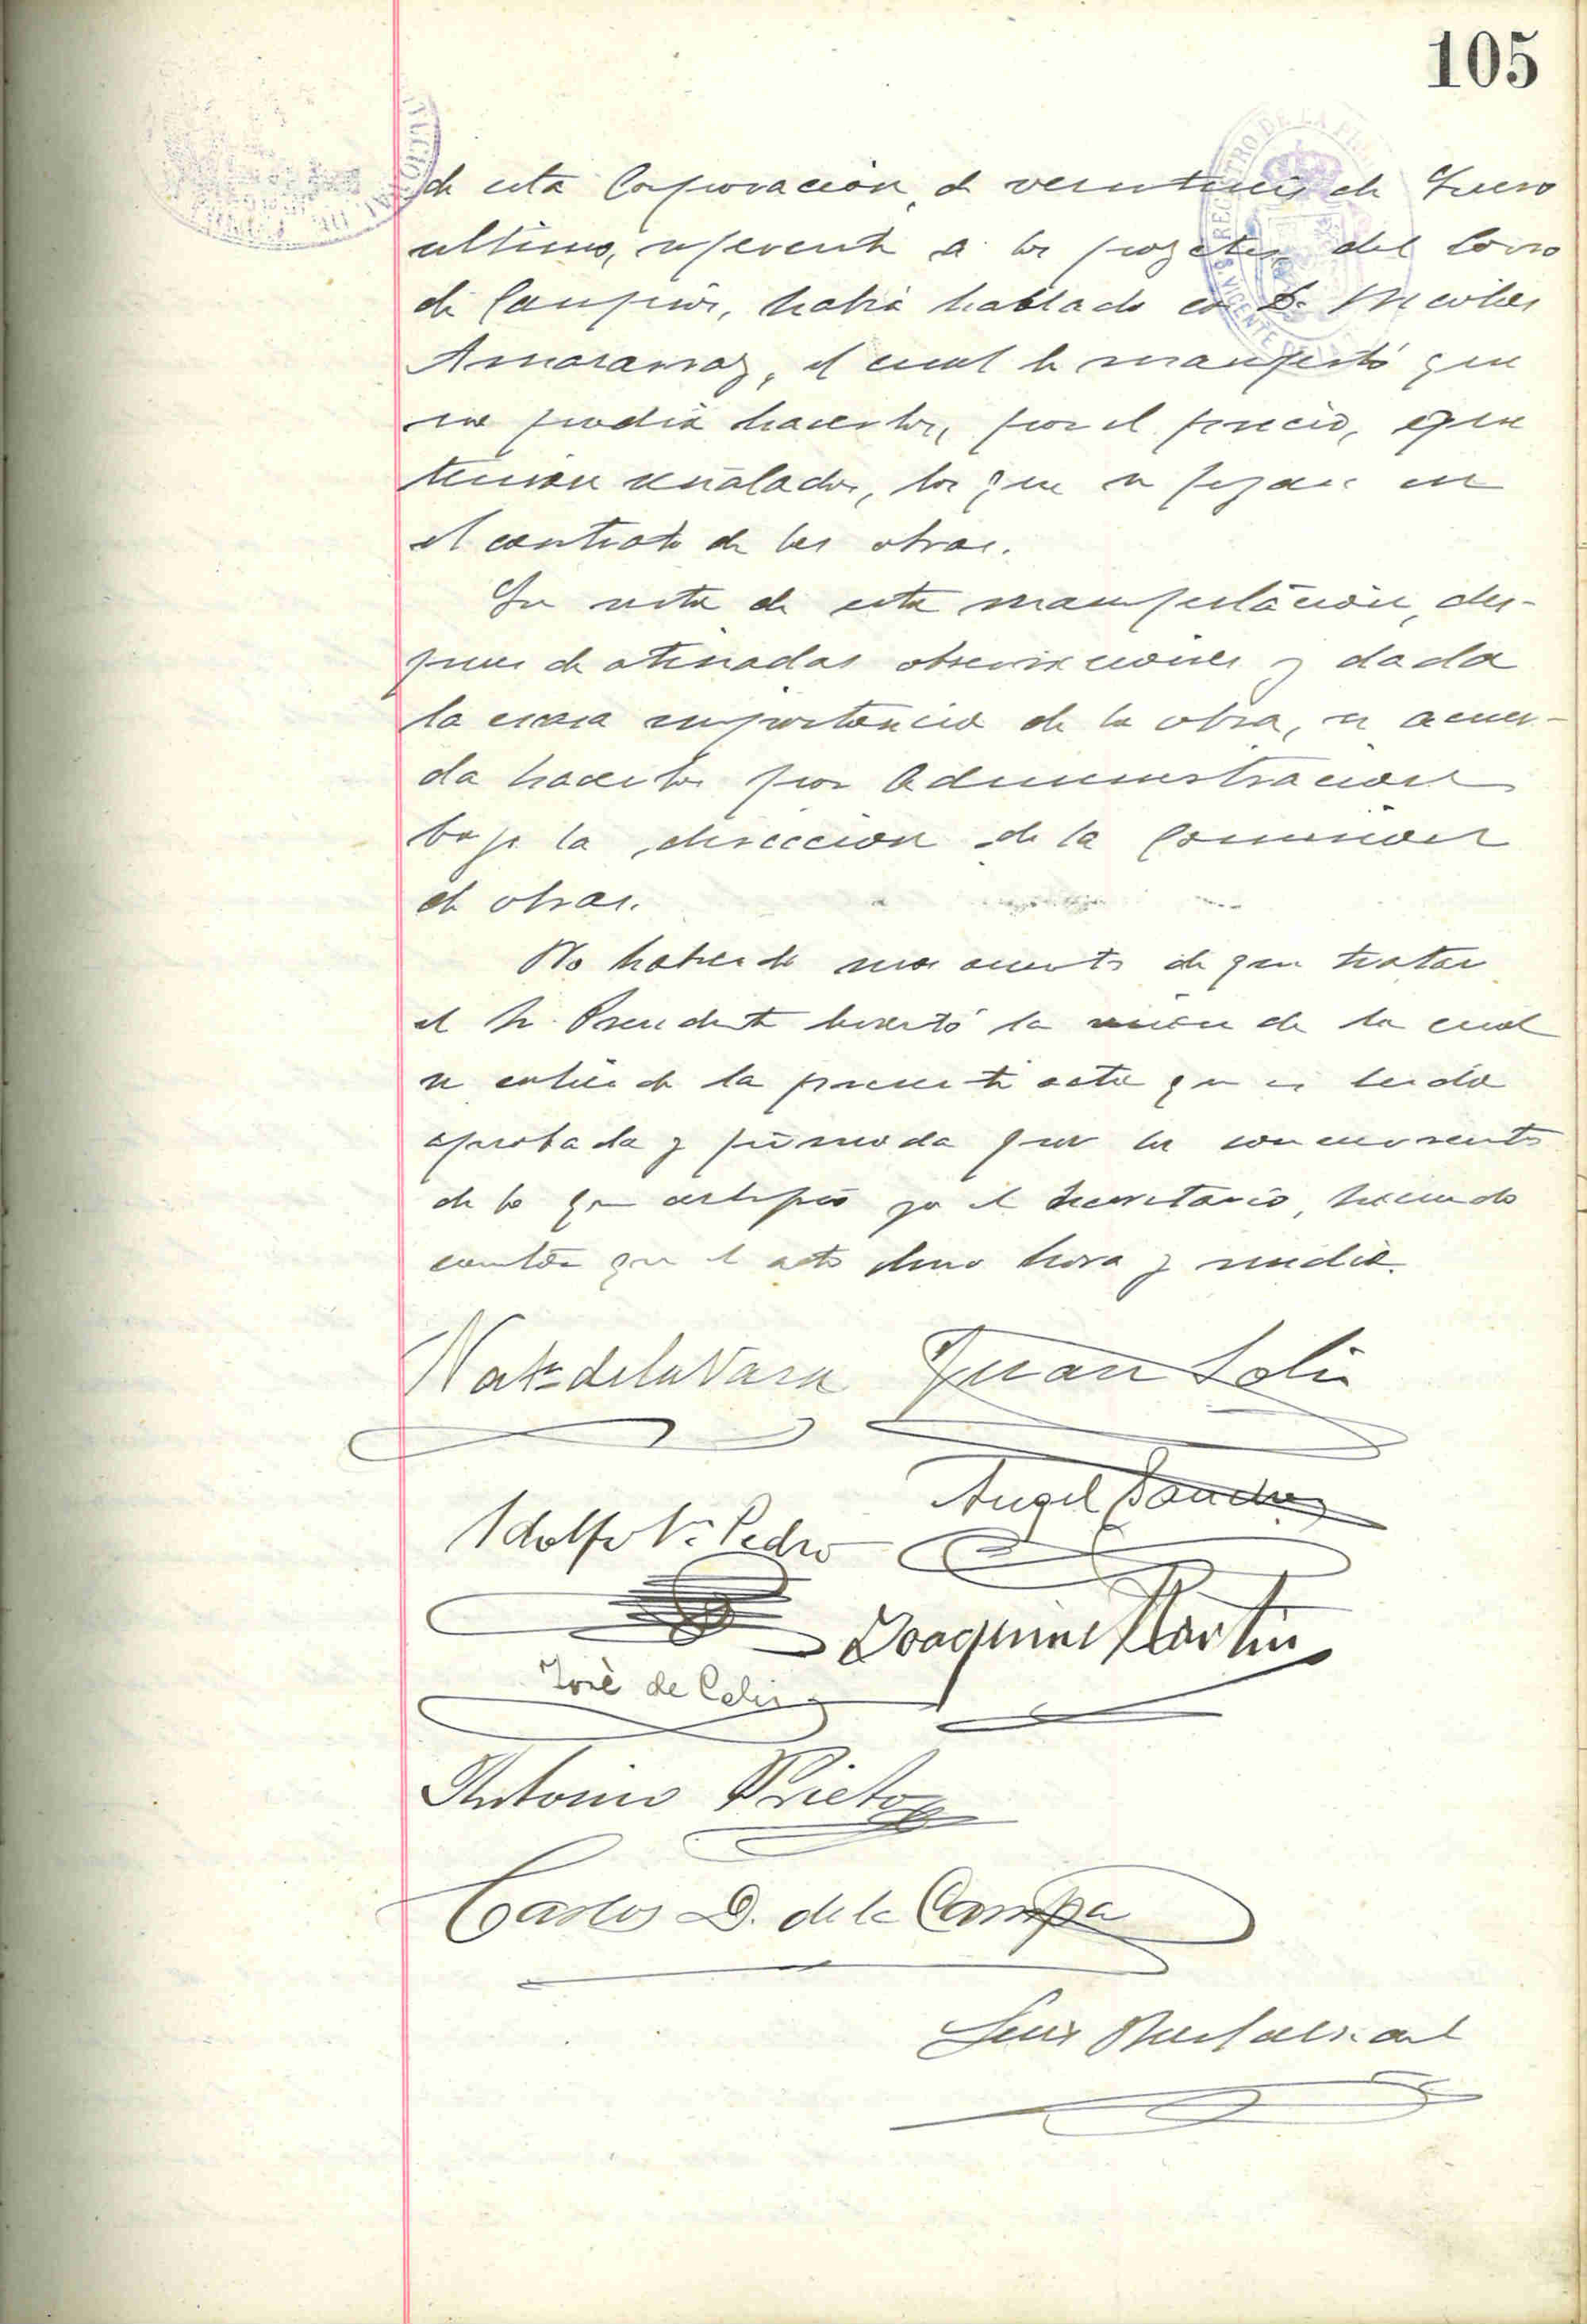 105
de esta Corporación, de veintiseis de Enero
ultimo, referente a los del Corro
de Campios, había hablado con D. Nicolas
Amararraz, el cual le manifestó que
no podia hacerlos, por el precio, que
tenian señalados, los que se fijan en
el contrato de las obras.
En vista de esta manifestación, des-
pues de atinadas observaciones y dada
la escasa importancia de la obra, se acuer-
da hacerlos por Administracion
bajo la direccion de la Comision
de obras.
No habiendo mas asuntos de que tratar
el Sr. Presidente levantó la sesion de la cual
se extiende la presente acta que es leida
aprobada y firmada por los concurrentes
de lo que certifico yo el Secretario, haciendo
constar que el acto duro hora y media.
de la Vara Juan Solis
Angel Sanchez
Adolfo V. Pedro
Joaquin Martin
José de Celis
Antonio Prieto
Carlos D. de la Campa
Luis